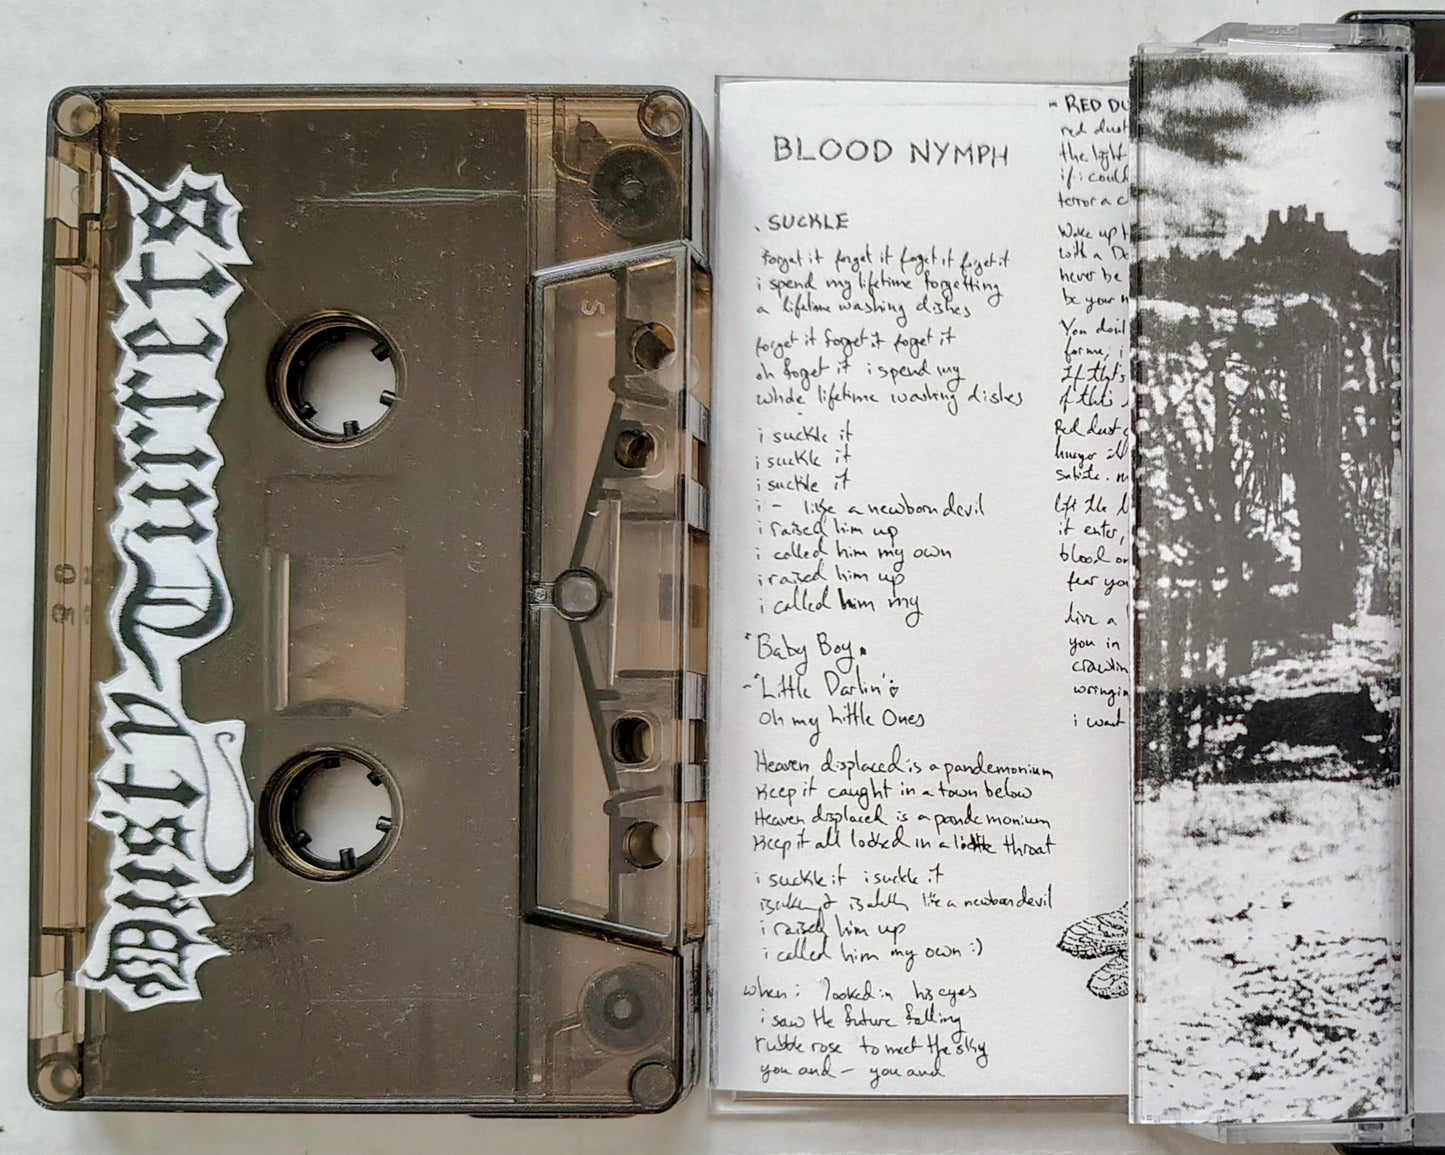 Dusty Turrets
30
BLOOD NYMPH
. SUCKLE
forget it forget it forget it forget it
i spend my lifetime forgetting
a lifetime washing dishes
forget it forget it forget it
oh forget it i spend my
whole lifetime washing dishes
i suckle it
i suckle it
i suckle it
i - like a newborn devil
i raised him up
i called him my own
i raised him up
i called him my
"Baby Boy.
- "Little Darlin'
Oh my Little Ones
Heaven displaced is a pandemonium
Keep it caught in a town below
Heaven displaced is a pandemonium
Keep it all locked in a little throat
i suckle it i suckle it
like a newborn devil
i raised him up
i called him my own :)
when i looked in his eyes
i saw the future falling
rubble rose to meet the sky
you and - you and
- RED DU
red dust
the light
if i could
terror a c
Wake up
with a De
never be
be your
You don't
for me, i
If that's
if that's
Red dust
hunger
satiate. m
lift the
it enter,
blood on
fear you
live a
you in
crawlin
wringin
i want